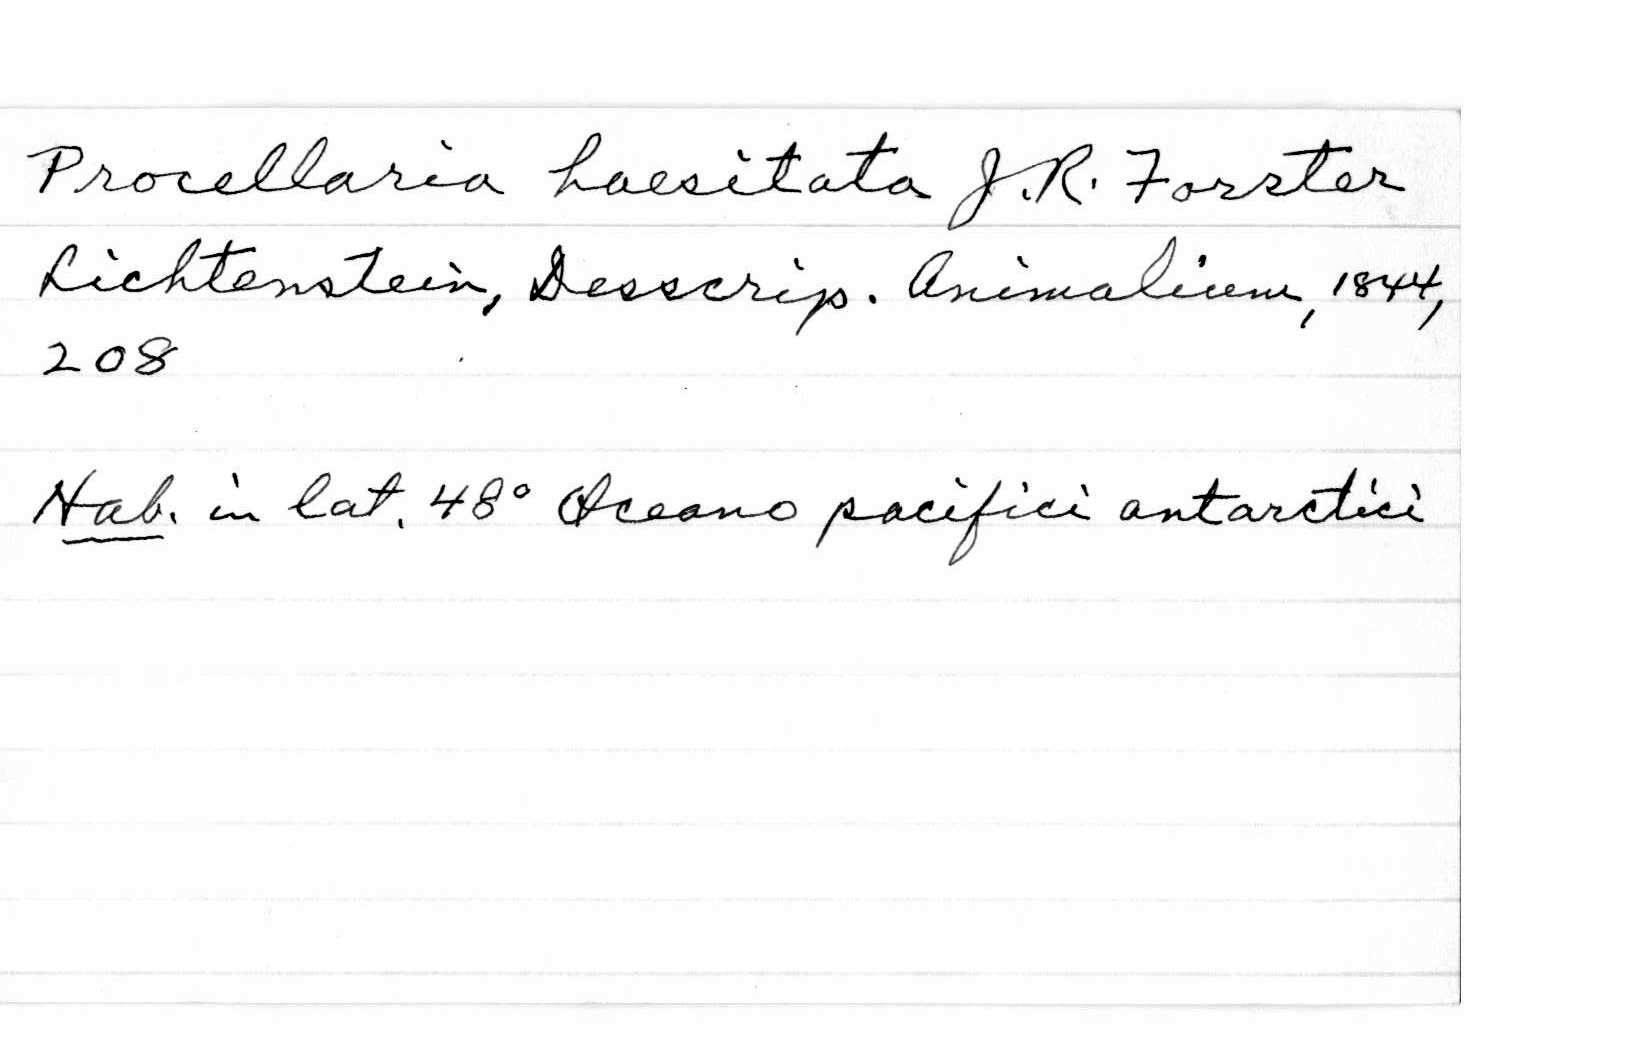 Procellaria haesitata J.R. Forster
Lichtenstein, Desscrip. Animalium, 1844,
208
Hab. in lat. 48° Oceano pacifici antarctici